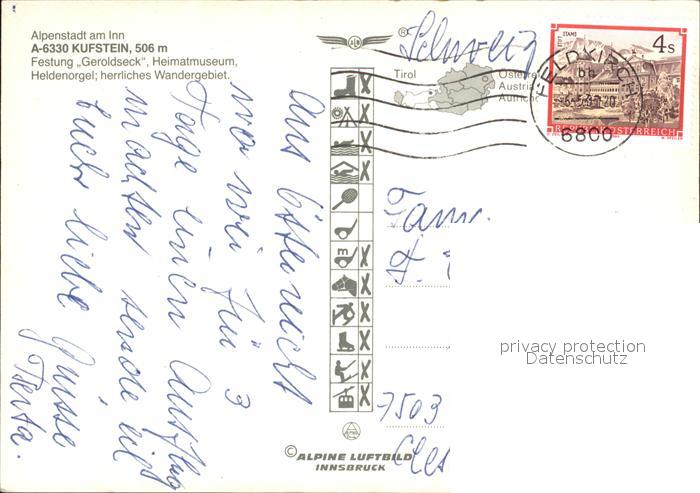 Alpenstadt am Inn
A-6330 KUFSTEIN, 506 m
Festung „Geroldseck", Heimatmuseum,
Heldenorgel; herrliches Wandergebiet.
Aus Österreicht
wo wir für 3
Tage einen Ausflug
machten sende ich
Euch liebe Grüsse
Berta.
©ALPINE LUFTBILD
INNSBRUCK
®
Schweiz
Tirol
Österre
Austria
Autrich
STIFT STAMS
4 S
REPUBLIK ÖSTERREICH
FELDKIRCH
6800
Fam.
7503
privacy protection
Datenschutz